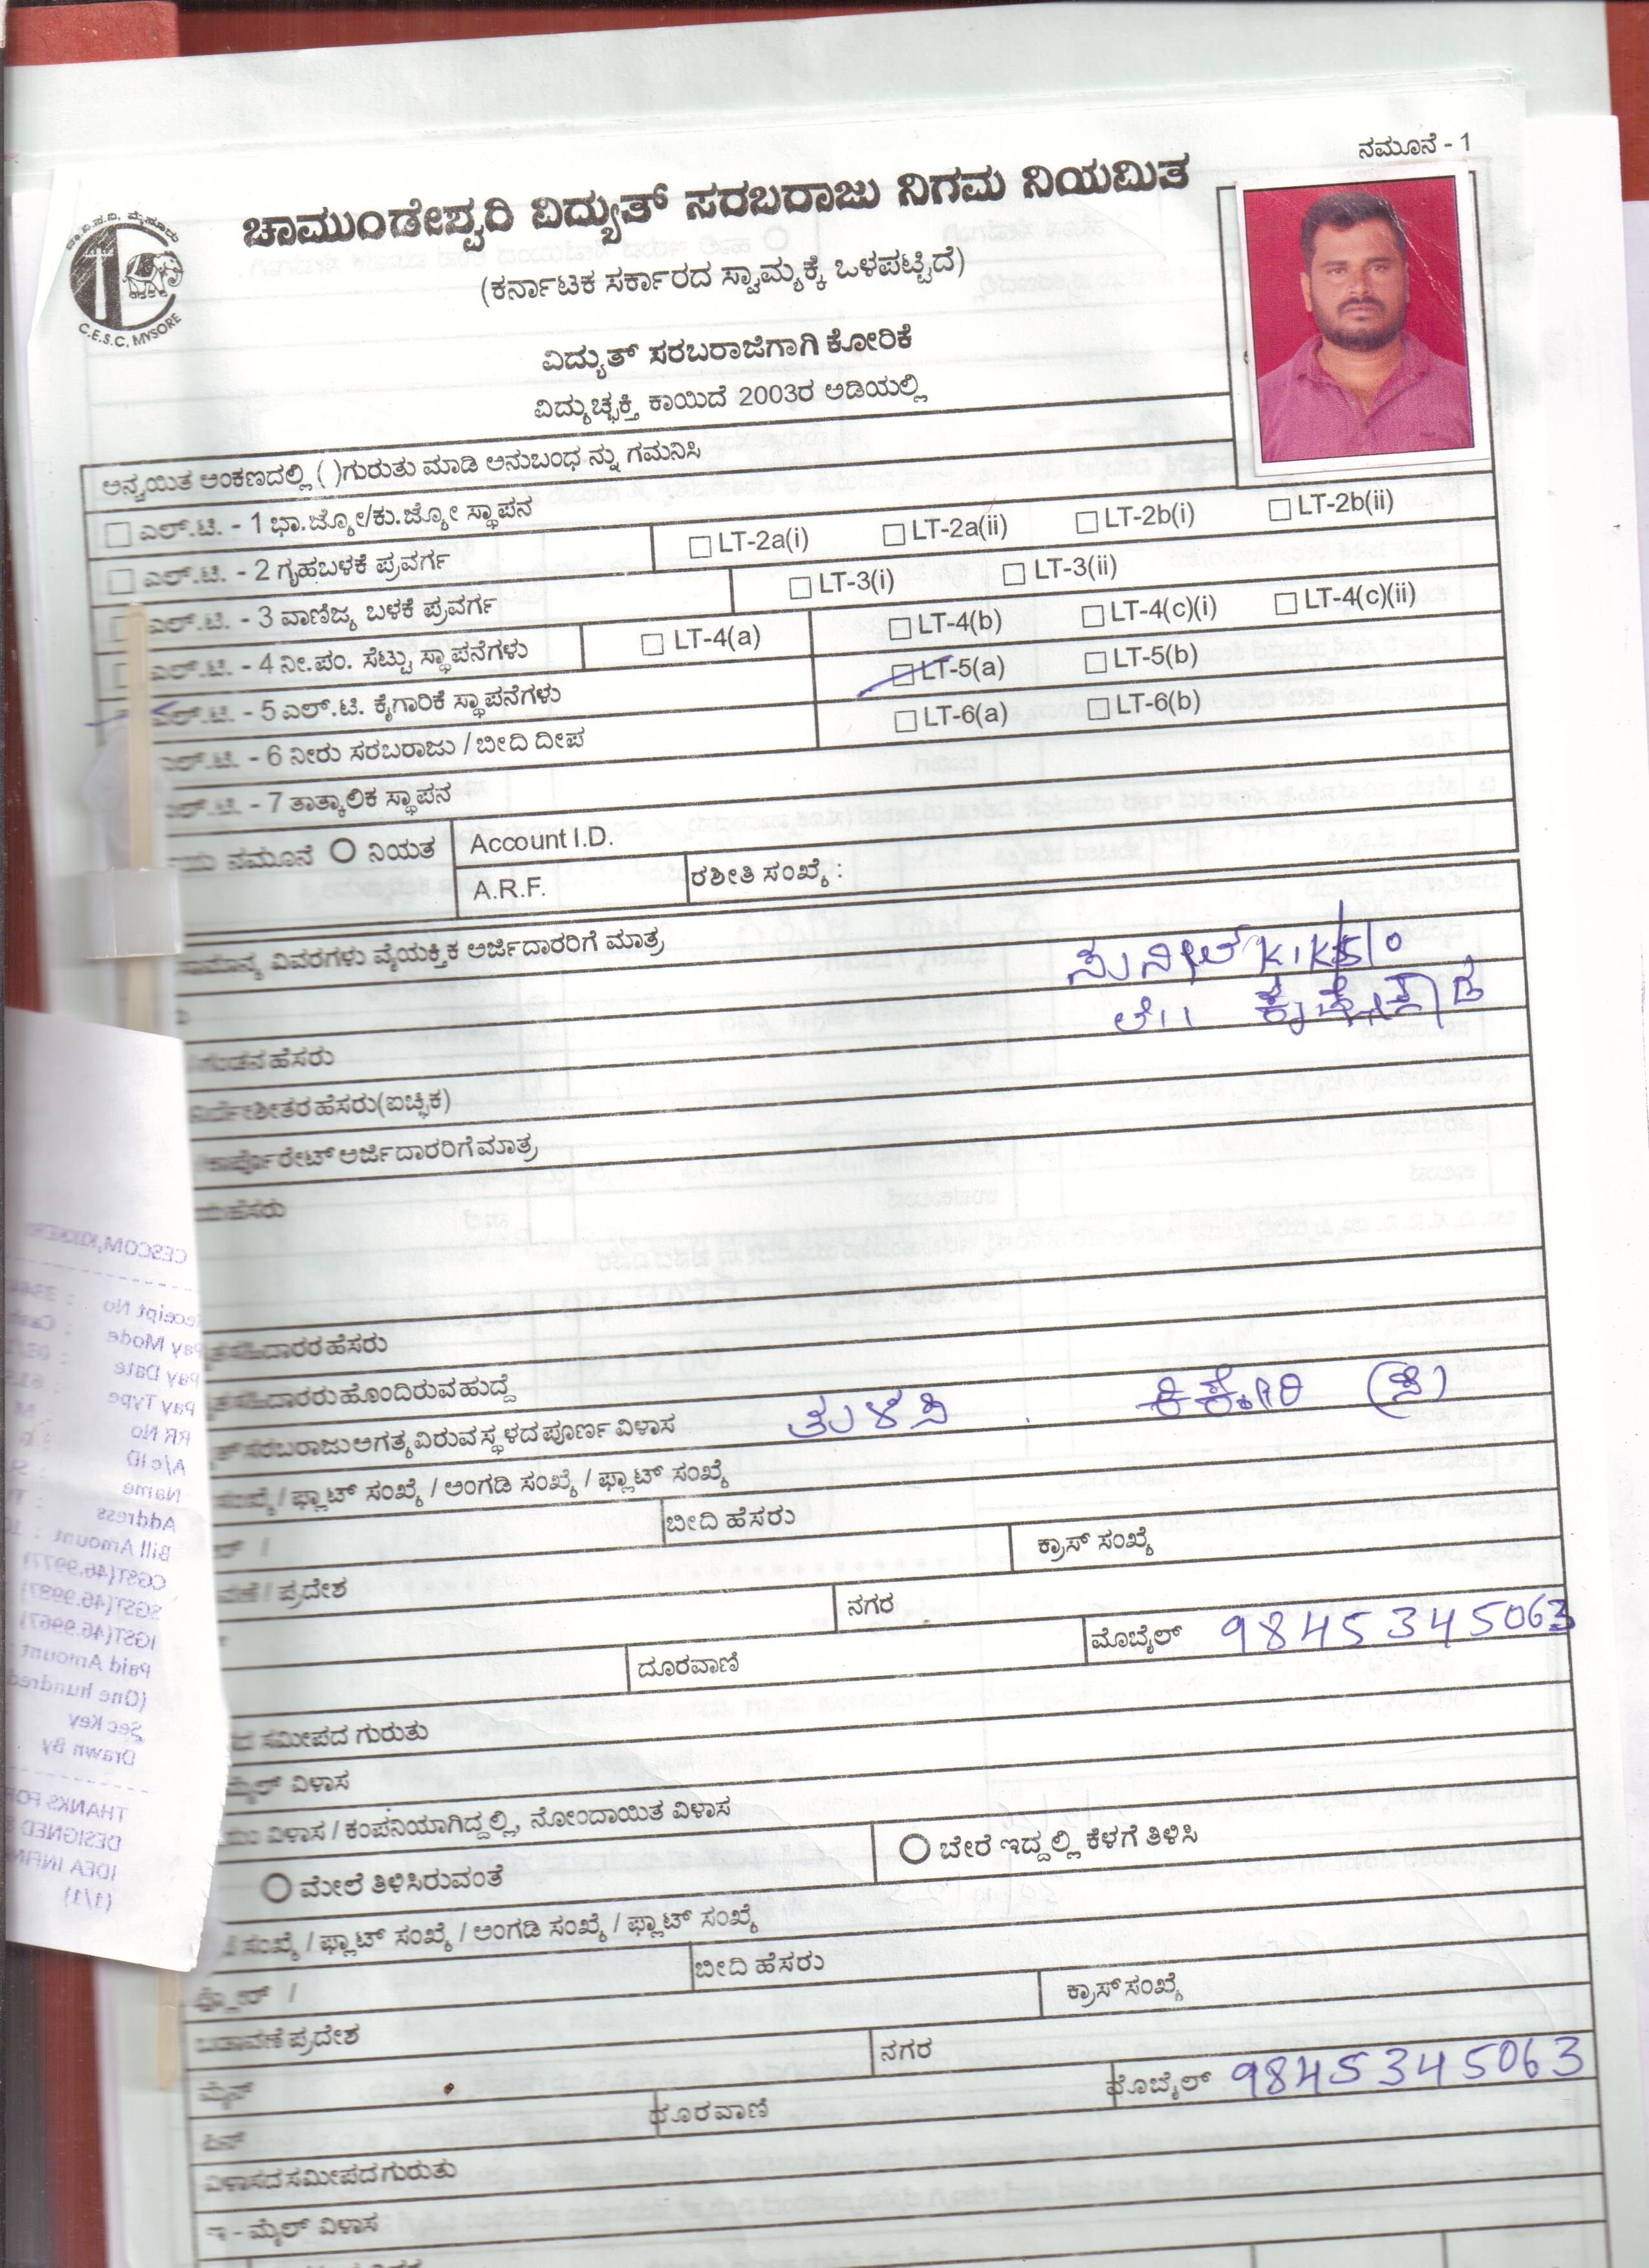 ನಮೂನೆ - 1
ಚಾ.ವಿ.ಸ.ನಿ. ಮೈಸೂರು
C.E.S.C, MYSORE
ಚಾಮುಂಡೇಶ್ವರಿ ವಿದ್ಯುತ್ ಸರಬರಾಜು ನಿಗಮ ನಿಯಮಿತ
(ಕರ್ನಾಟಕ ಸರ್ಕಾರದ ಸ್ವಾಮ್ಯಕ್ಕೆ ಒಳಪಟ್ಟಿದೆ)
ವಿದ್ಯುತ್ ಸರಬರಾಜಿಗಾಗಿ ಕೋರಿಕೆ
ವಿದ್ಯುಚ್ಛಕ್ತಿ ಕಾಯಿದೆ 2003ರ ಅಡಿಯಲ್ಲಿ
ಅನ್ವಯಿತ ಅಂಕಣದಲ್ಲಿ ( )ಗುರುತು ಮಾಡಿ ಅನುಬಂಧ ನ್ನು ಗಮನಿಸಿ
ಎಲ್.ಟಿ. - 1 ಭಾ.ಜ್ಯೋ/ಕು.ಜ್ಯೋ ಸ್ಥಾಪನ
ಎಲ್.ಟಿ. - 2 ಗೃಹಬಳಕೆ ಪ್ರವರ್ಗ LT-2a(i) LT-2a(ii) LT-2b(i) LT-2b(ii)
ಎಲ್.ಟಿ. - 3 ವಾಣಿಜ್ಯ ಬಳಕೆ ಪ್ರವರ್ಗ LT-3(i) LT-3(ii)
ಎಲ್.ಟಿ. - 4 ನೀ.ಪಂ. ಸೆಟ್ಟು ಸ್ಥಾಪನೆಗಳು LT-4(a) LT-4(b) LT-4(c)(i) LT-4(c)(ii)
ಎಲ್.ಟಿ. - 5 ಎಲ್.ಟಿ. ಕೈಗಾರಿಕೆ ಸ್ಥಾಪನೆಗಳು LT-5(a) LT-5(b)
ಎಲ್.ಟಿ. - 6 ನೀರು ಸರಬರಾಜು / ಬೀದಿ ದೀಪ LT-6(a) LT-6(b)
ಎಲ್.ಟಿ. - 7 ತಾತ್ಕಾಲಿಕ ಸ್ಥಾಪನ
ನಮೂನೆ ನಿಯತ Account I.D.
A.R.F. ರಶೀತಿ ಸಂಖ್ಯೆ :
ಸಾಮಾನ್ಯ ವಿವರಗಳು ವೈಯಕ್ತಿಕ ಅರ್ಜಿದಾರರಿಗೆ ಮಾತ್ರ
ಸುನೀಲ್ K.K S/o
ಲೇ||
ಗಂಡನ ಹೆಸರು
ನಿರ್ದೇಶೀತರ ಹೆಸರು(ಐಚ್ಛಿಕ)
ಕಾರ್ಪೊರೇಟ್ ಅರ್ಜಿದಾರರಿಗೆ ಮಾತ್ರ
ಯಹೆಸರು
ಸಹಿದಾರರ ಹೆಸರು
ಸಹಿದಾರರು ಹೊಂದಿರುವ ಹುದ್ದೆ
ಸರಬರಾಜು ಅಗತ್ಯವಿರುವ ಸ್ಥಳದ ಪೂರ್ಣ ವಿಳಾಸ ತುಳಸಿ ಕಿಕ್ಕೇರಿ
ಸಂಖ್ಯೆ / ಫ್ಲಾಟ್ ಸಂಖ್ಯೆ / ಅಂಗಡಿ ಸಂಖ್ಯೆ / ಫ್ಲಾಟ್ ಸಂಖ್ಯೆ
/ ಬೀದಿ ಹೆಸರು
/ ಪ್ರದೇಶ ಕ್ರಾಸ್ ಸಂಖ್ಯೆ
ನಗರ
ದೂರವಾಣಿ ಮೊಬೈಲ್ 9845345063
ಸಮೀಪದ ಗುರುತು
ಮೈಲ್ ವಿಳಾಸ
ವಿಳಾಸ / ಕಂಪನಿಯಾಗಿದ್ದಲ್ಲಿ, ನೋಂದಾಯಿತ ವಿಳಾಸ
ಮೇಲೆ ತಿಳಿಸಿರುವಂತೆ ಬೇರೆ ಇದ್ದಲ್ಲಿ ಕೆಳಗೆ ತಿಳಿಸಿ
ಸಂಖ್ಯೆ / ಫ್ಲಾಟ್ ಸಂಖ್ಯೆ / ಅಂಗಡಿ ಸಂಖ್ಯೆ / ಫ್ಲಾಟ್ ಸಂಖ್ಯೆ
ಫ್ಲೋರ್ / ಬೀದಿ ಹೆಸರು
ಬಡಾವಣೆ ಪ್ರದೇಶ ಕ್ರಾಸ್ ಸಂಖ್ಯೆ
ಮೈನ್ ನಗರ
ಪಿನ್ ದೂರವಾಣಿ ಮೊಬೈಲ್ 9845345063
ವಿಳಾಸದ ಸಮೀಪದ ಗುರುತು
ಇ - ಮೈಲ್ ವಿಳಾಸ
CESCOM,KIKKERI
Receipt No :
Pay Mode : Cash
Pay Date :
Pay Type :
RR No :
A/c ID :
Name :
Address :
Bill Amount :
CGST(46.9977)
SGST(46.9987)
IGST(46.9967)
Paid Amount
(One hundred
Sec Key
Drawn By
THANKS FOR
DESIGNED
IDEA INFIN
(1/1)